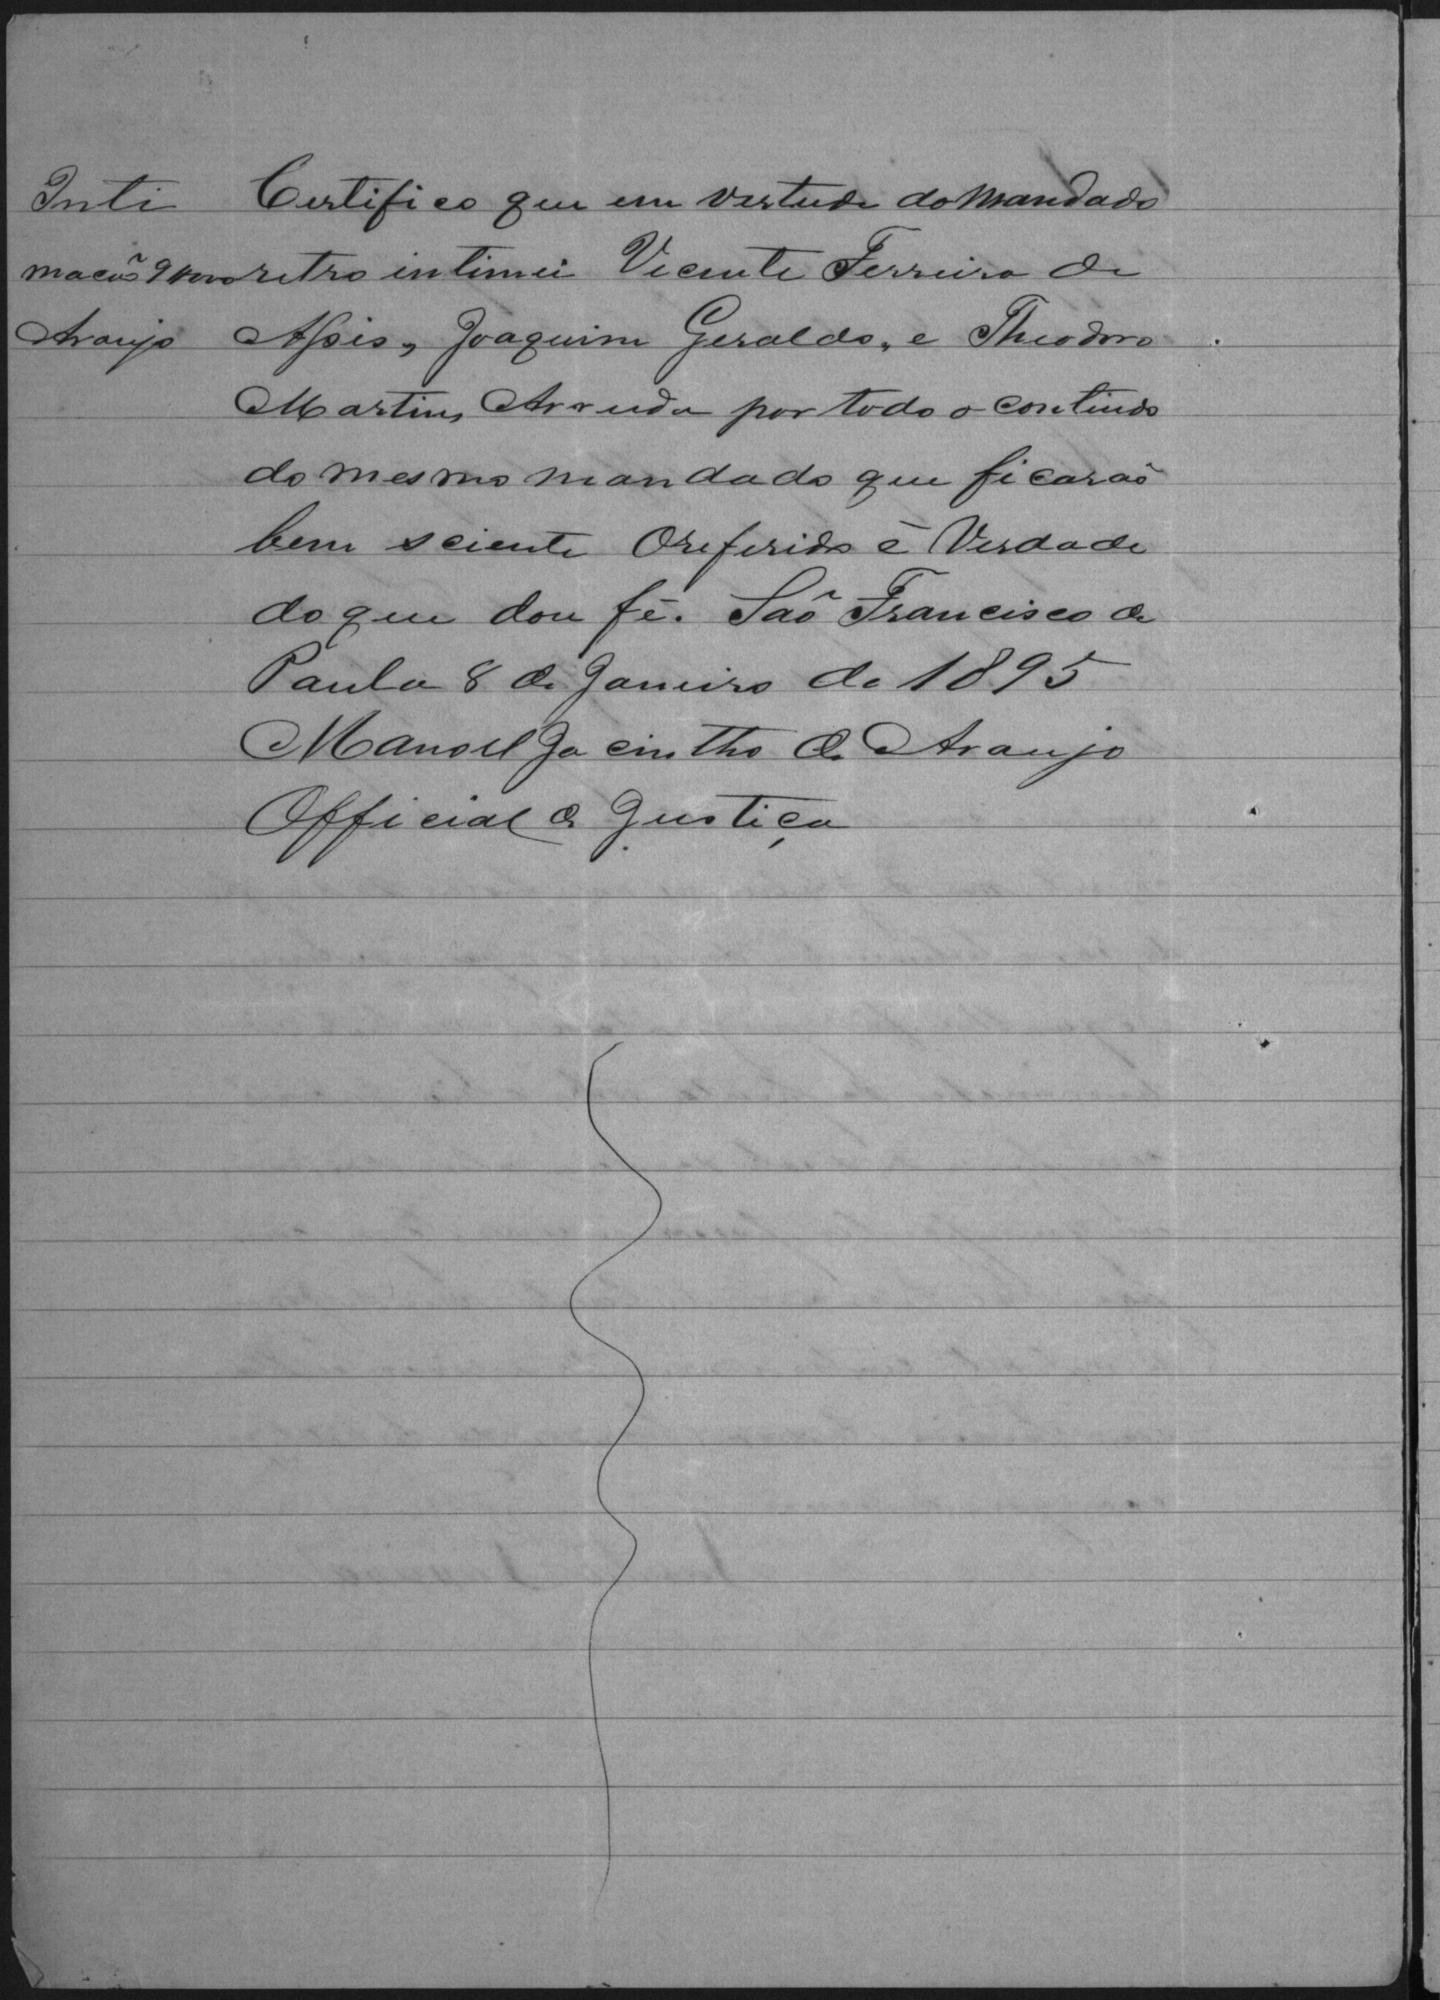 Inti
macão 9000
Araujo
Certifico que em vertude do Mandado
retro intimei Vicente Ferreira de
Assis, Joaquim Geraldo, e Theodoro
Martins Arruda por todo o contiudo
do mesmo mandado que ficarão
bem sciente O referido é Verdade
do que dou fé. São Francisco de
Paula 8 de Janeiro de 1895
Manoel Jacintho de Araujo
Official de Justiça